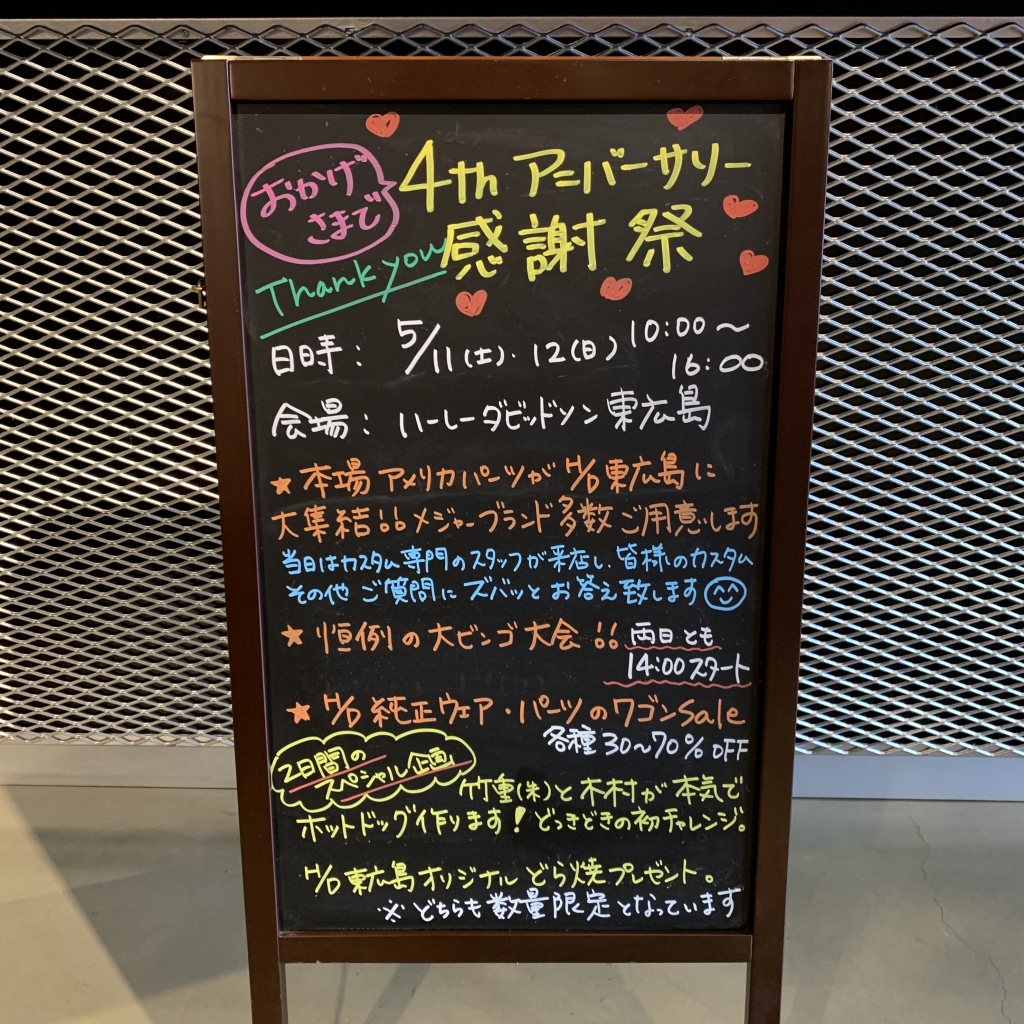 おかげ
さまで
4th アニバーサリー
Thank you 感謝祭
日時： 5/11(土)・12(日) 10:00〜
16:00
会場： ハーレーダビッドソン 東広島
★ 本場 アメリカパーツが H/D東広島に
大集結!! メジャーブランド多数ご用意します
当日はカスタム専門のスタッフが来店し、皆様のカスタム
その他 ご質問に ズバッと お答え致します
★ 恒例の大ビンゴ大会!! 両日とも
14:00スタート
★ H/D 純正ウェア・パーツのワゴンSale
各種30〜70% OFF
2日間の
スペシャル企画
竹重(朱)と木村が本気で
ホットドッグ作ります! どっきどきの初チャレンジ。
H/D 東広島オリジナル どら焼プレゼント。
※ どちらも数量限定となっています